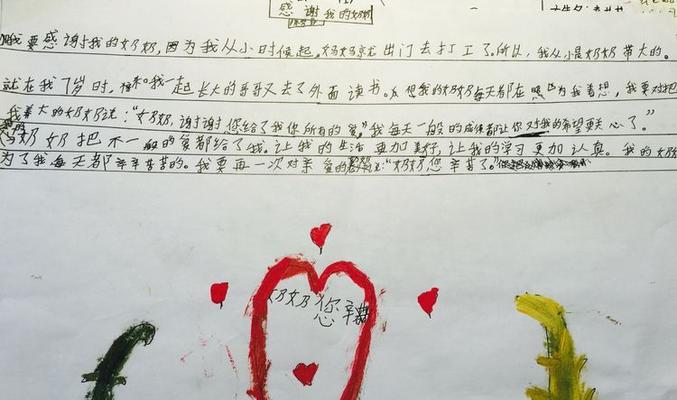 感谢我的奶奶
我要感谢我的奶奶，因为我从小时候起，妈妈就出门去打工了。所以，我从小是奶奶带大的。
就在我7岁时，和我一起长大的哥哥又去了外面读书。我的奶奶每天都在为我着想，我要对把
我养大的奶奶说：“奶奶，谢谢你给了我你所有的爱。”我每天一般的成绩都让你对我的希望更关心了。”
奶奶把不一般的爱都给了我。让我的生活更加美好，让我的学习更加认真。我的奶奶
为了我每天都辛辛苦苦的。我要再一次对亲爱的奶奶说：“奶奶，您辛苦了。”
奶奶您辛苦